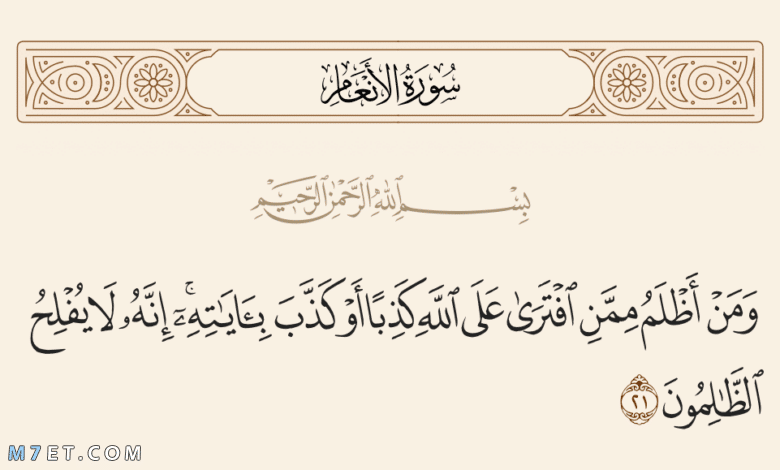 سُورَةُ الأَنْعَامِ
بِسْمِ ٱللَّهِ ٱلرَّحْمَٰنِ ٱلرَّحِيمِ
وَمَنْ أَظْلَمُ مِمَّنِ ٱفْتَرَىٰ عَلَى ٱللَّهِ كَذِبًا أَوْ كَذَّبَ بِـَٔايَـٰتِهِۦٓ ۚ إِنَّهُۥ لَا يُفْلِحُ
ٱلظَّـٰلِمُونَ ٢١
M7ET.COM